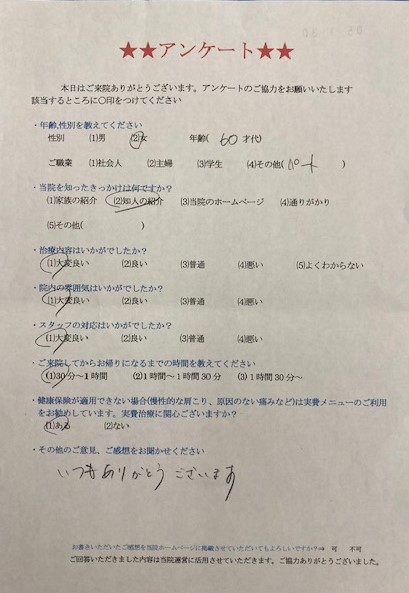 ★★アンケート★★
本日はご来院ありがとうございます。アンケートのご協力をお願いいたします
該当するところに○印をつけてください
・年齢,性別を教えてください
性別 (1)男 (2)女 年齢( 60 才代)
ご職業 (1)社会人 (2)主婦 (3)学生 (4)その他( パート )
・当院を知ったきっかけは何ですか?
(1)家族の紹介 (2)知人の紹介 (3)当院のホームページ (4)通りがかり
(5)その他( )
・治療内容はいかがでしたか?
(1)大変良い (2)良い (3)普通 (4)悪い (5)よくわからない
・院内の雰囲気はいかがでしたか?
(1)大変良い (2)良い (3)普通 (4)悪い
・スタッフの対応はいかがでしたか?
(1)大変良い (2)良い (3)普通 (4)悪い
・ご来院してからお帰りになるまでの時間を教えてください
(1)30分~1時間 (2)1時間~1時間30分 (3)1時間30分~
・健康保険が適用できない場合(慢性的な肩こり、原因のない痛みなど)は実費メニューのご利用
をお勧めしています。実費治療に関心ございますか?
(1)ある (2)ない
・その他のご意見、ご感想をお聞かせください
いつもありがとうございます
お書きいただいたご感想を当院ホームページに掲載させていただいてもよろしいですか?⇒ 可 不可
ご回答いただきました内容は当院運営に活用させていただきます。ご協力ありがとうございました。